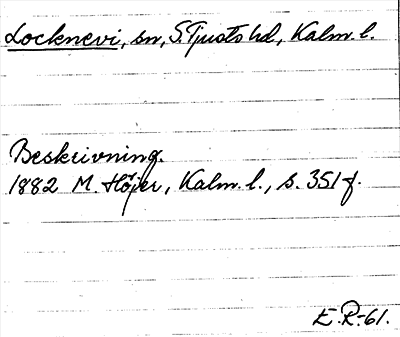 Locknevi, sn, S. Tjusts hd, Kalm. l.
Beskrivning.
1882 M. Höjer, Kalm. l., s. 351 f.
E.R.-61.